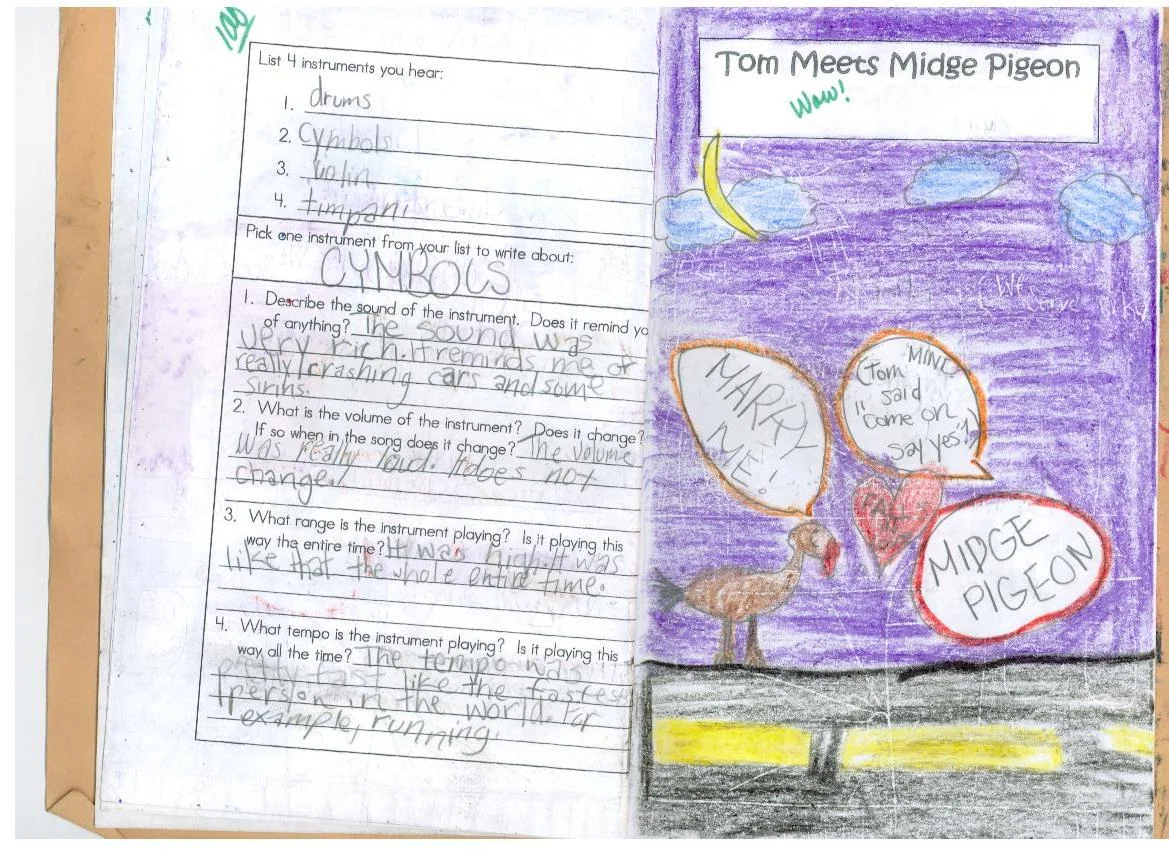 100
List 4 instruments you hear:
1. drums
2. Cymbols
3. Violin
4. timpani
Pick one instrument from your list to write about:
CYMBOLS
1. Describe the sound of the instrument. Does it remind yo
of anything? The sound was
very rich. It reminds me of
really crashing cars and some
sirins.
2. What is the volume of the instrument? Does it change?
If so when in the song does it change? The volume
was really loud. It does not
change!
3. What range is the instrument playing? Is it playing this
way the entire time? It was high. It was
like that the whole entire time.
4. What tempo is the instrument playing? Is it playing this
way all the time? The tempo was
pretty fast like the fastest
person in the world. For
example, running.
Tom Meets Midge Pigeon
Wow!
MARRY
ME!
MIND
(Tom
said
"Come on
say yes!")
MIDGE
PIGEON